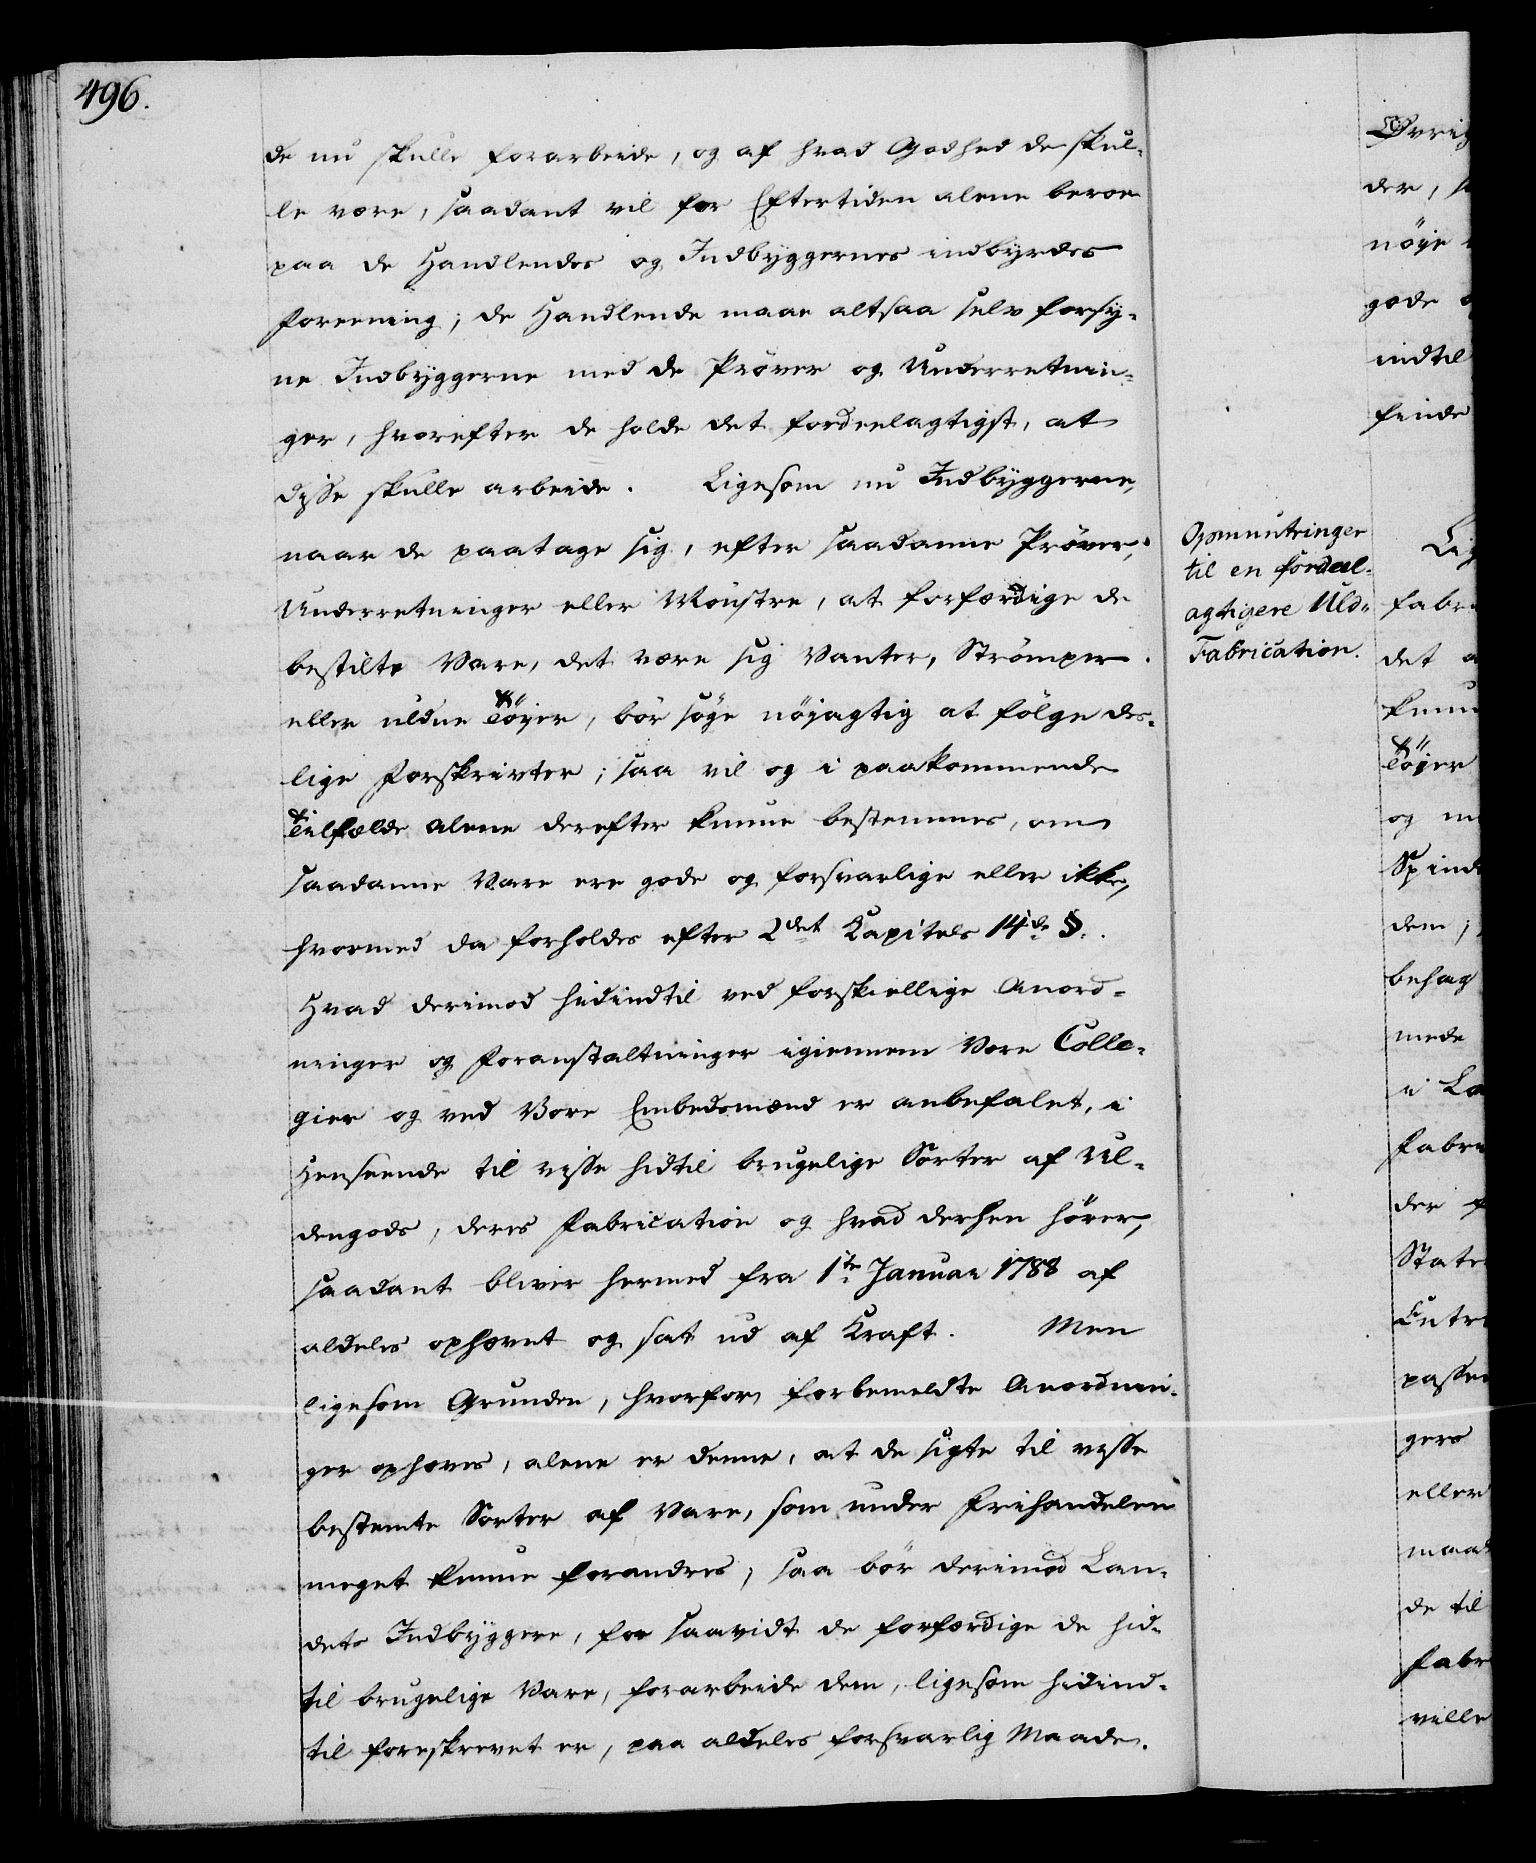 496.
de nu skulle forarbeide, og af hvad Godhed de skul-
le være, saadant vil for Eftertiden alene beroe
paa de Handlendes og Indbyggernes indbyrdes
Foreening; de Handlende maae altsaa selv forsy-
ne Indbyggerne med de Prøver og Underretnin-
ger, hvorefter de holde det fordeelagtigst, at
disse skulle arbeide. Ligesom nu Indbyggerne,
naar de paatage sig, efter saadanne Prøver,
Underretninger eller Mønstre, at forfærdige de
bestilte Vare, det være sig Vanter, Strømper
eller uldne Tøjer, bør søge nøjagtig at følge des-
lige Forskrivter; saa vil og i paakommende
Tilfælde alene derefter kunne bestemmes, om
saadanne Vare ere gode og forsvarlige eller ikke,
hvormed da forholdes efter 2det Kapitels 14de §.
Hvad derimod hidindtil ved forskiellige Anord-
ninger og Foranstaltninger igiennem Vore Colle-
gier og ved Vore Embedsmænd er anbefalet, i
Henseende til visse hidtil brugelige Sorter af Ul-
dengods, deres Fabrication og hvad derhen hører,
saadant bliver hermed fra 1te Januar 1788 af
aldeles ophævet og sat ud af Kraft. Men
ligesom Grunden, hvorfor forbemeldte Anordnin-
ger ophæves, alene er denne, at de sigte til visse
bestemte Sorter af Vare, som under Frihandelen
meget kunne forandres, saa bør derimod Lan-
dets Indbyggere, for saavidt de forfærdige de hid-
til brugelige Vare, forarbeide dem, ligesom hidind-
til foreskrevet er, paa aldeles forsvarlig Maade.
Opmuntringer
til en fordeel-
agtigere Uld-
Fabrication.
Øvrig
der, s
nøje
gode
indtil
finde
Lig
Fabri
det a
kunn
Tøjer
og m
Spind
dem;
behag
mede
i La
Fabri
der
State
Entre
passe
gers
eller
maad
de til
Fabr
ville